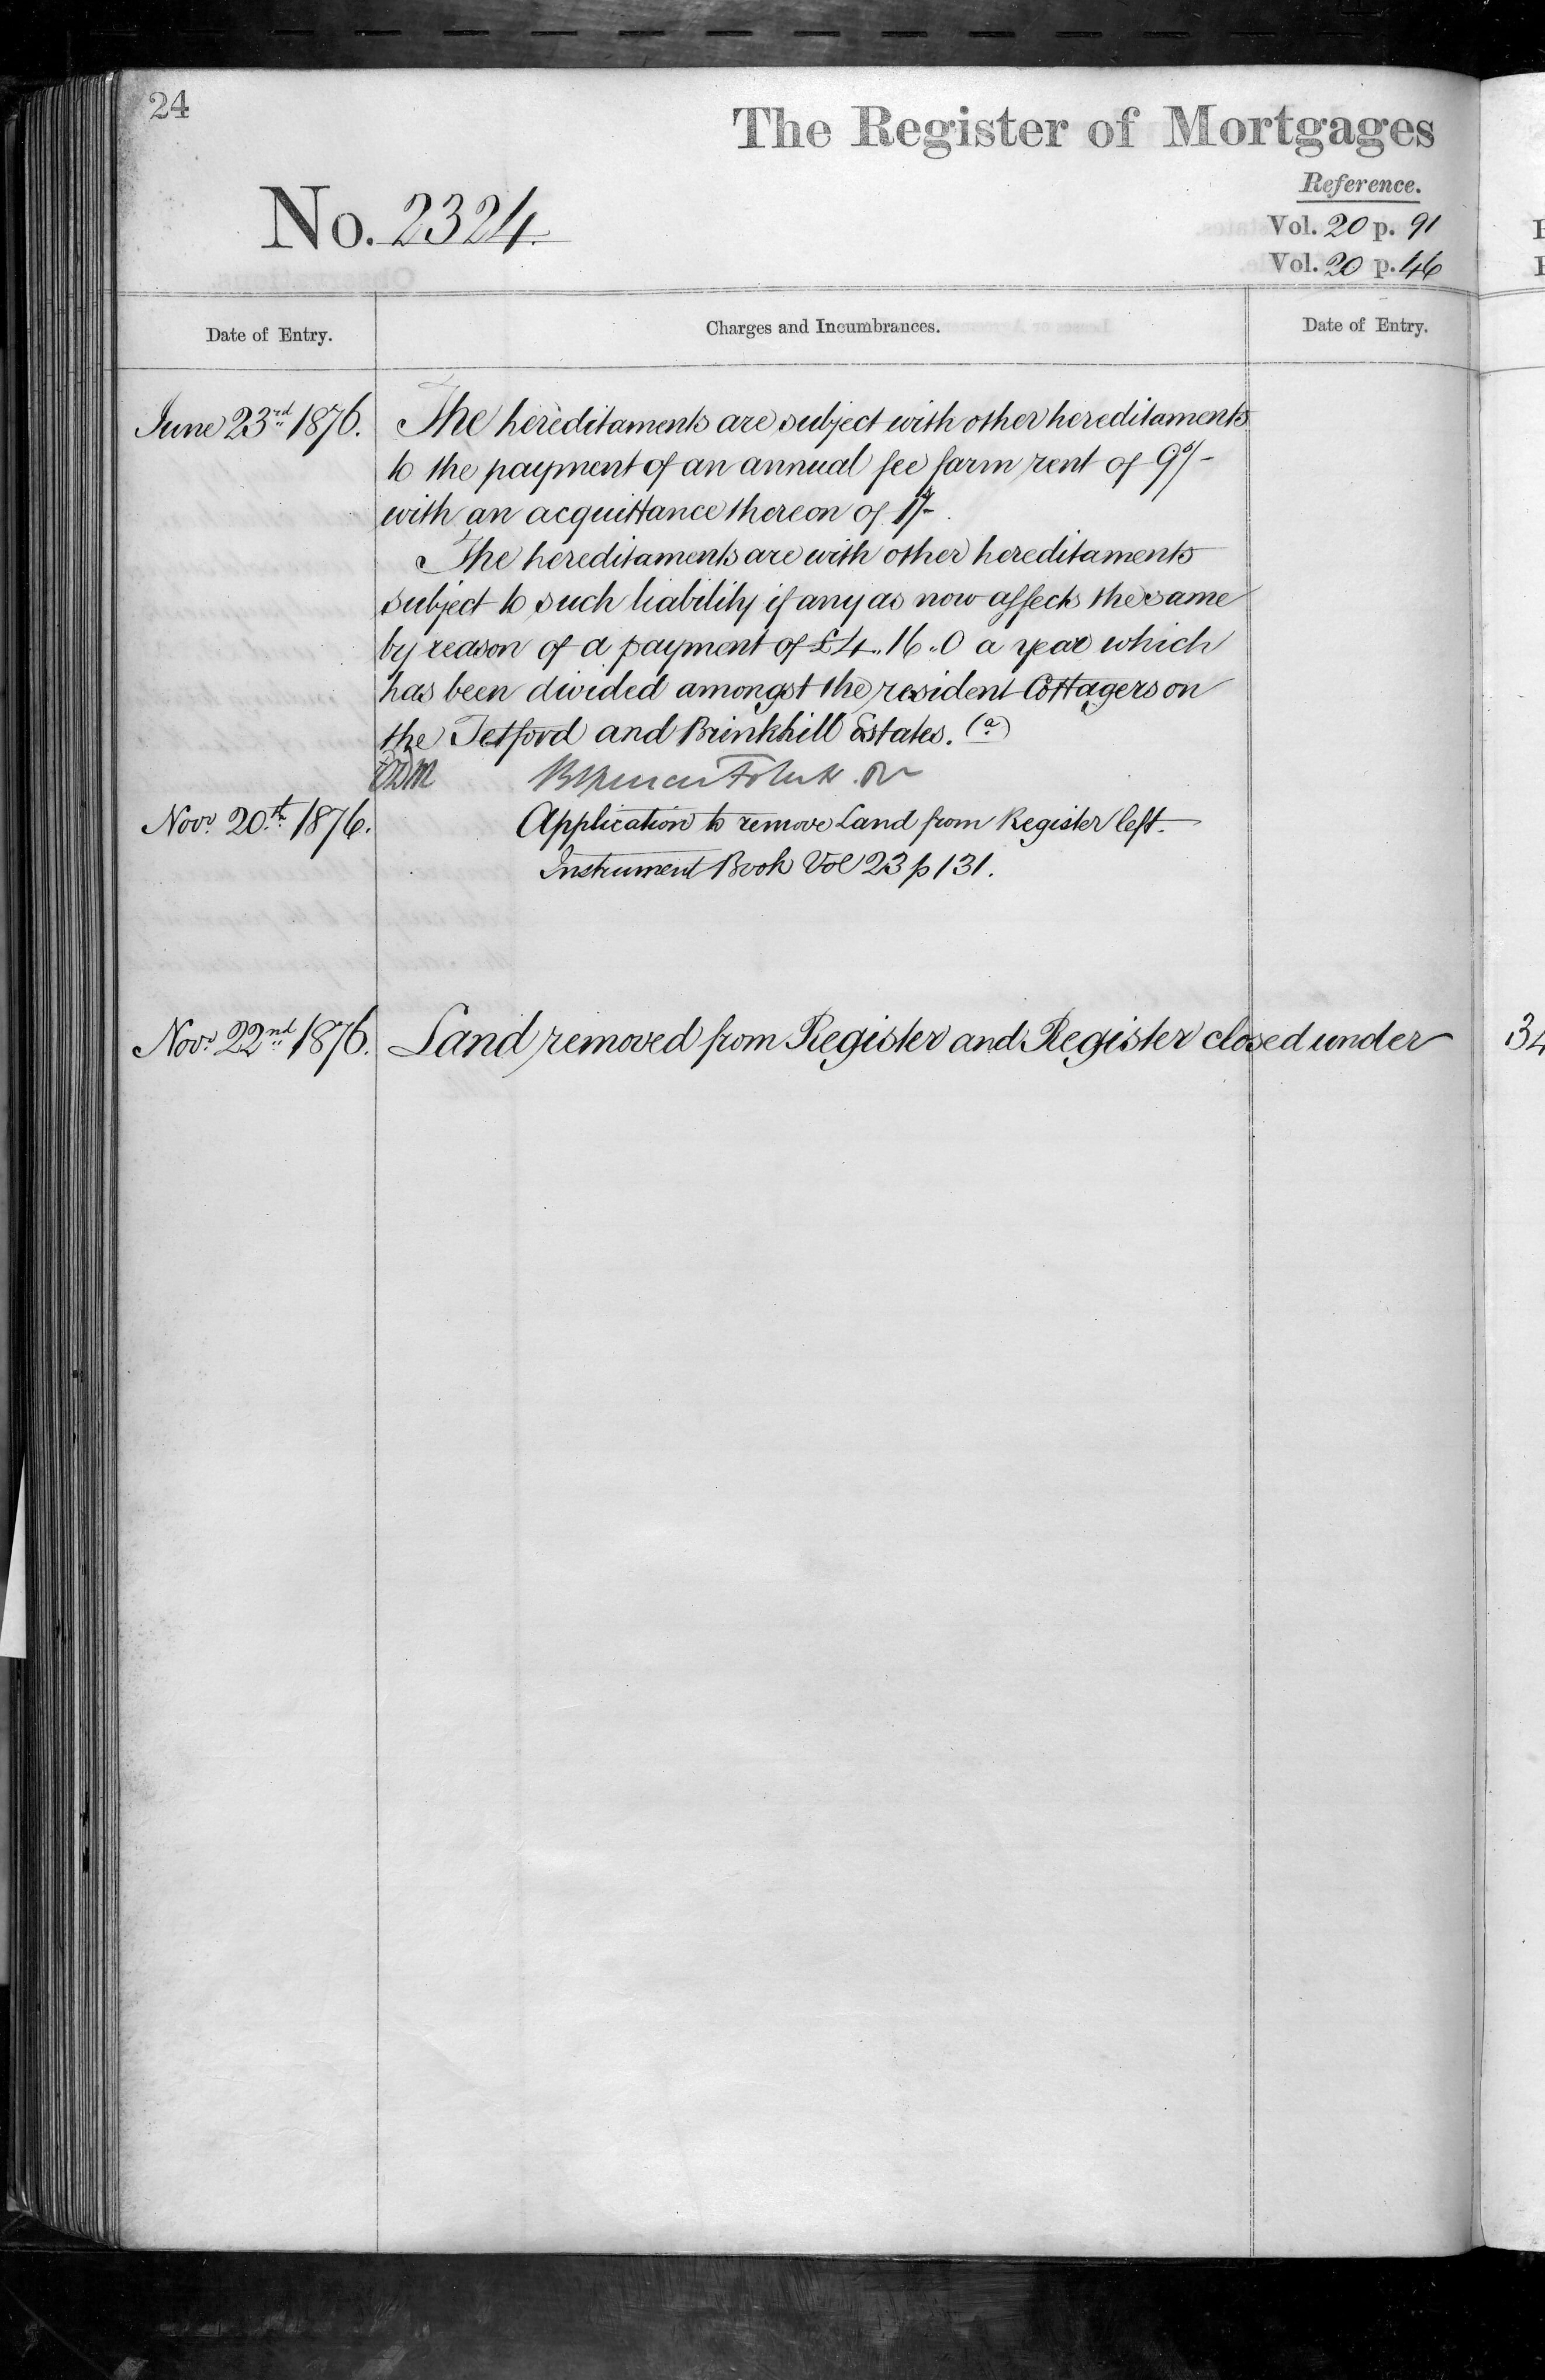 24
The Register of Mortgages
Reference.
No. 2324.
Vol. 20 p. 91
Vol. 20 p. 46
Date of Entry.
Charges and Incumbrances.
Date of Entry.
June 23rd 1876.
The hereditaments are subject with other hereditaments
to the payment of an annual fee farm rent of 9s/-
with an acquittance thereon of
The hereditaments are with other hereditaments
subject to such liability if any as now affects the same
by reason of a payment of £4.. 16.. 0 a year which
has been divided amongst the resident Cottagers on
the Tetford and Brinkhill Estates. (a)
Novr 20th 1876.
Application to remove Land from Register left.
Instrument Book Vol 23 p 131.
Novr 22nd 1876.
Land removed from Register and Register closed under
34